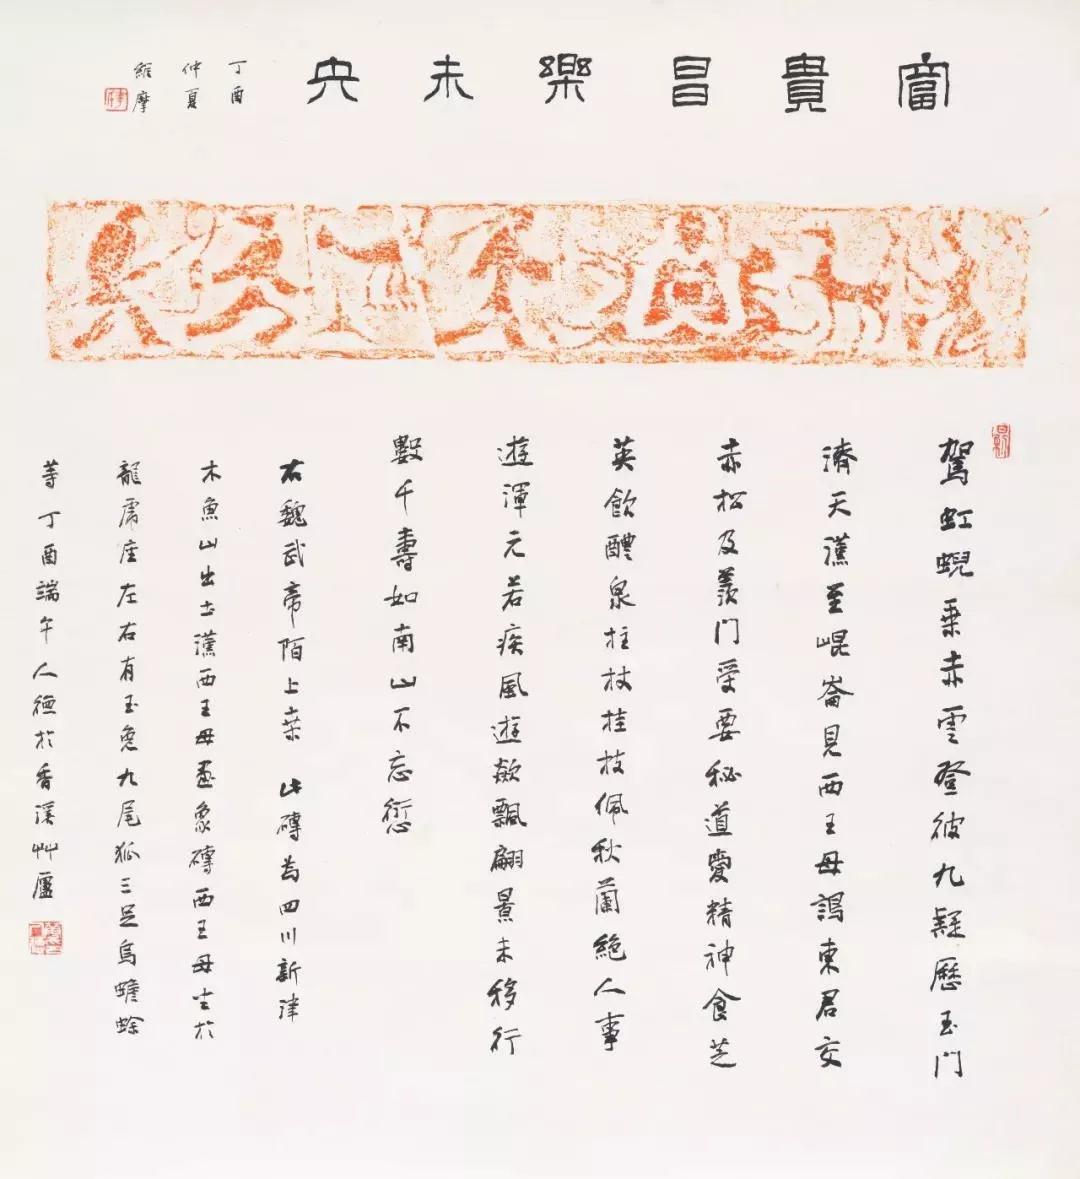 富貴昌樂未央
丁酉
仲夏
維摩
駕虹蜺乘赤雲登彼九疑歷玉門
濟天漢至崐崙見西王母謁東君交
赤松及羨門受要秘道愛精神食芝
英飲醴泉拄杖桂枝佩秋蘭絕人事
遊渾元若疾風遊欻飄翩景未移行
數千壽如南山不忘愆
右魏武帝陌上桑 此磚為四川新津
木魚山出土漢西王母畫象磚西王母坐於
龍虎座左右有玉兔九尾狐三足烏蟾蜍
等丁酉端午人德於香溪艸廬